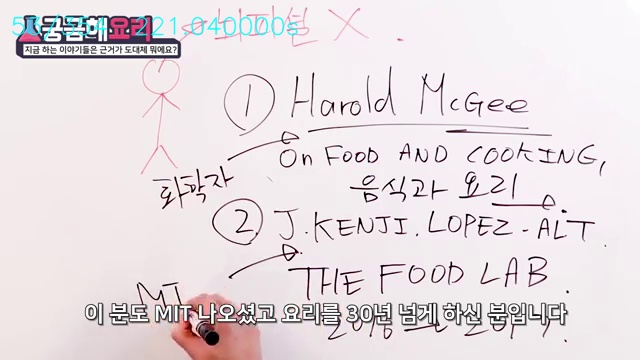 궁금해요리
지금 하는 이야기들은 근거가 도대체 뭐에요?
① Harold McGee
ON FOOD AND COOKING,
화학자
음식과 요리
② J. KENJI. LOPEZ-ALT.
THE FOOD LAB.
MI
이 분도 MIT 나오셨고 요리를 30년 넘게 하신 분입니다